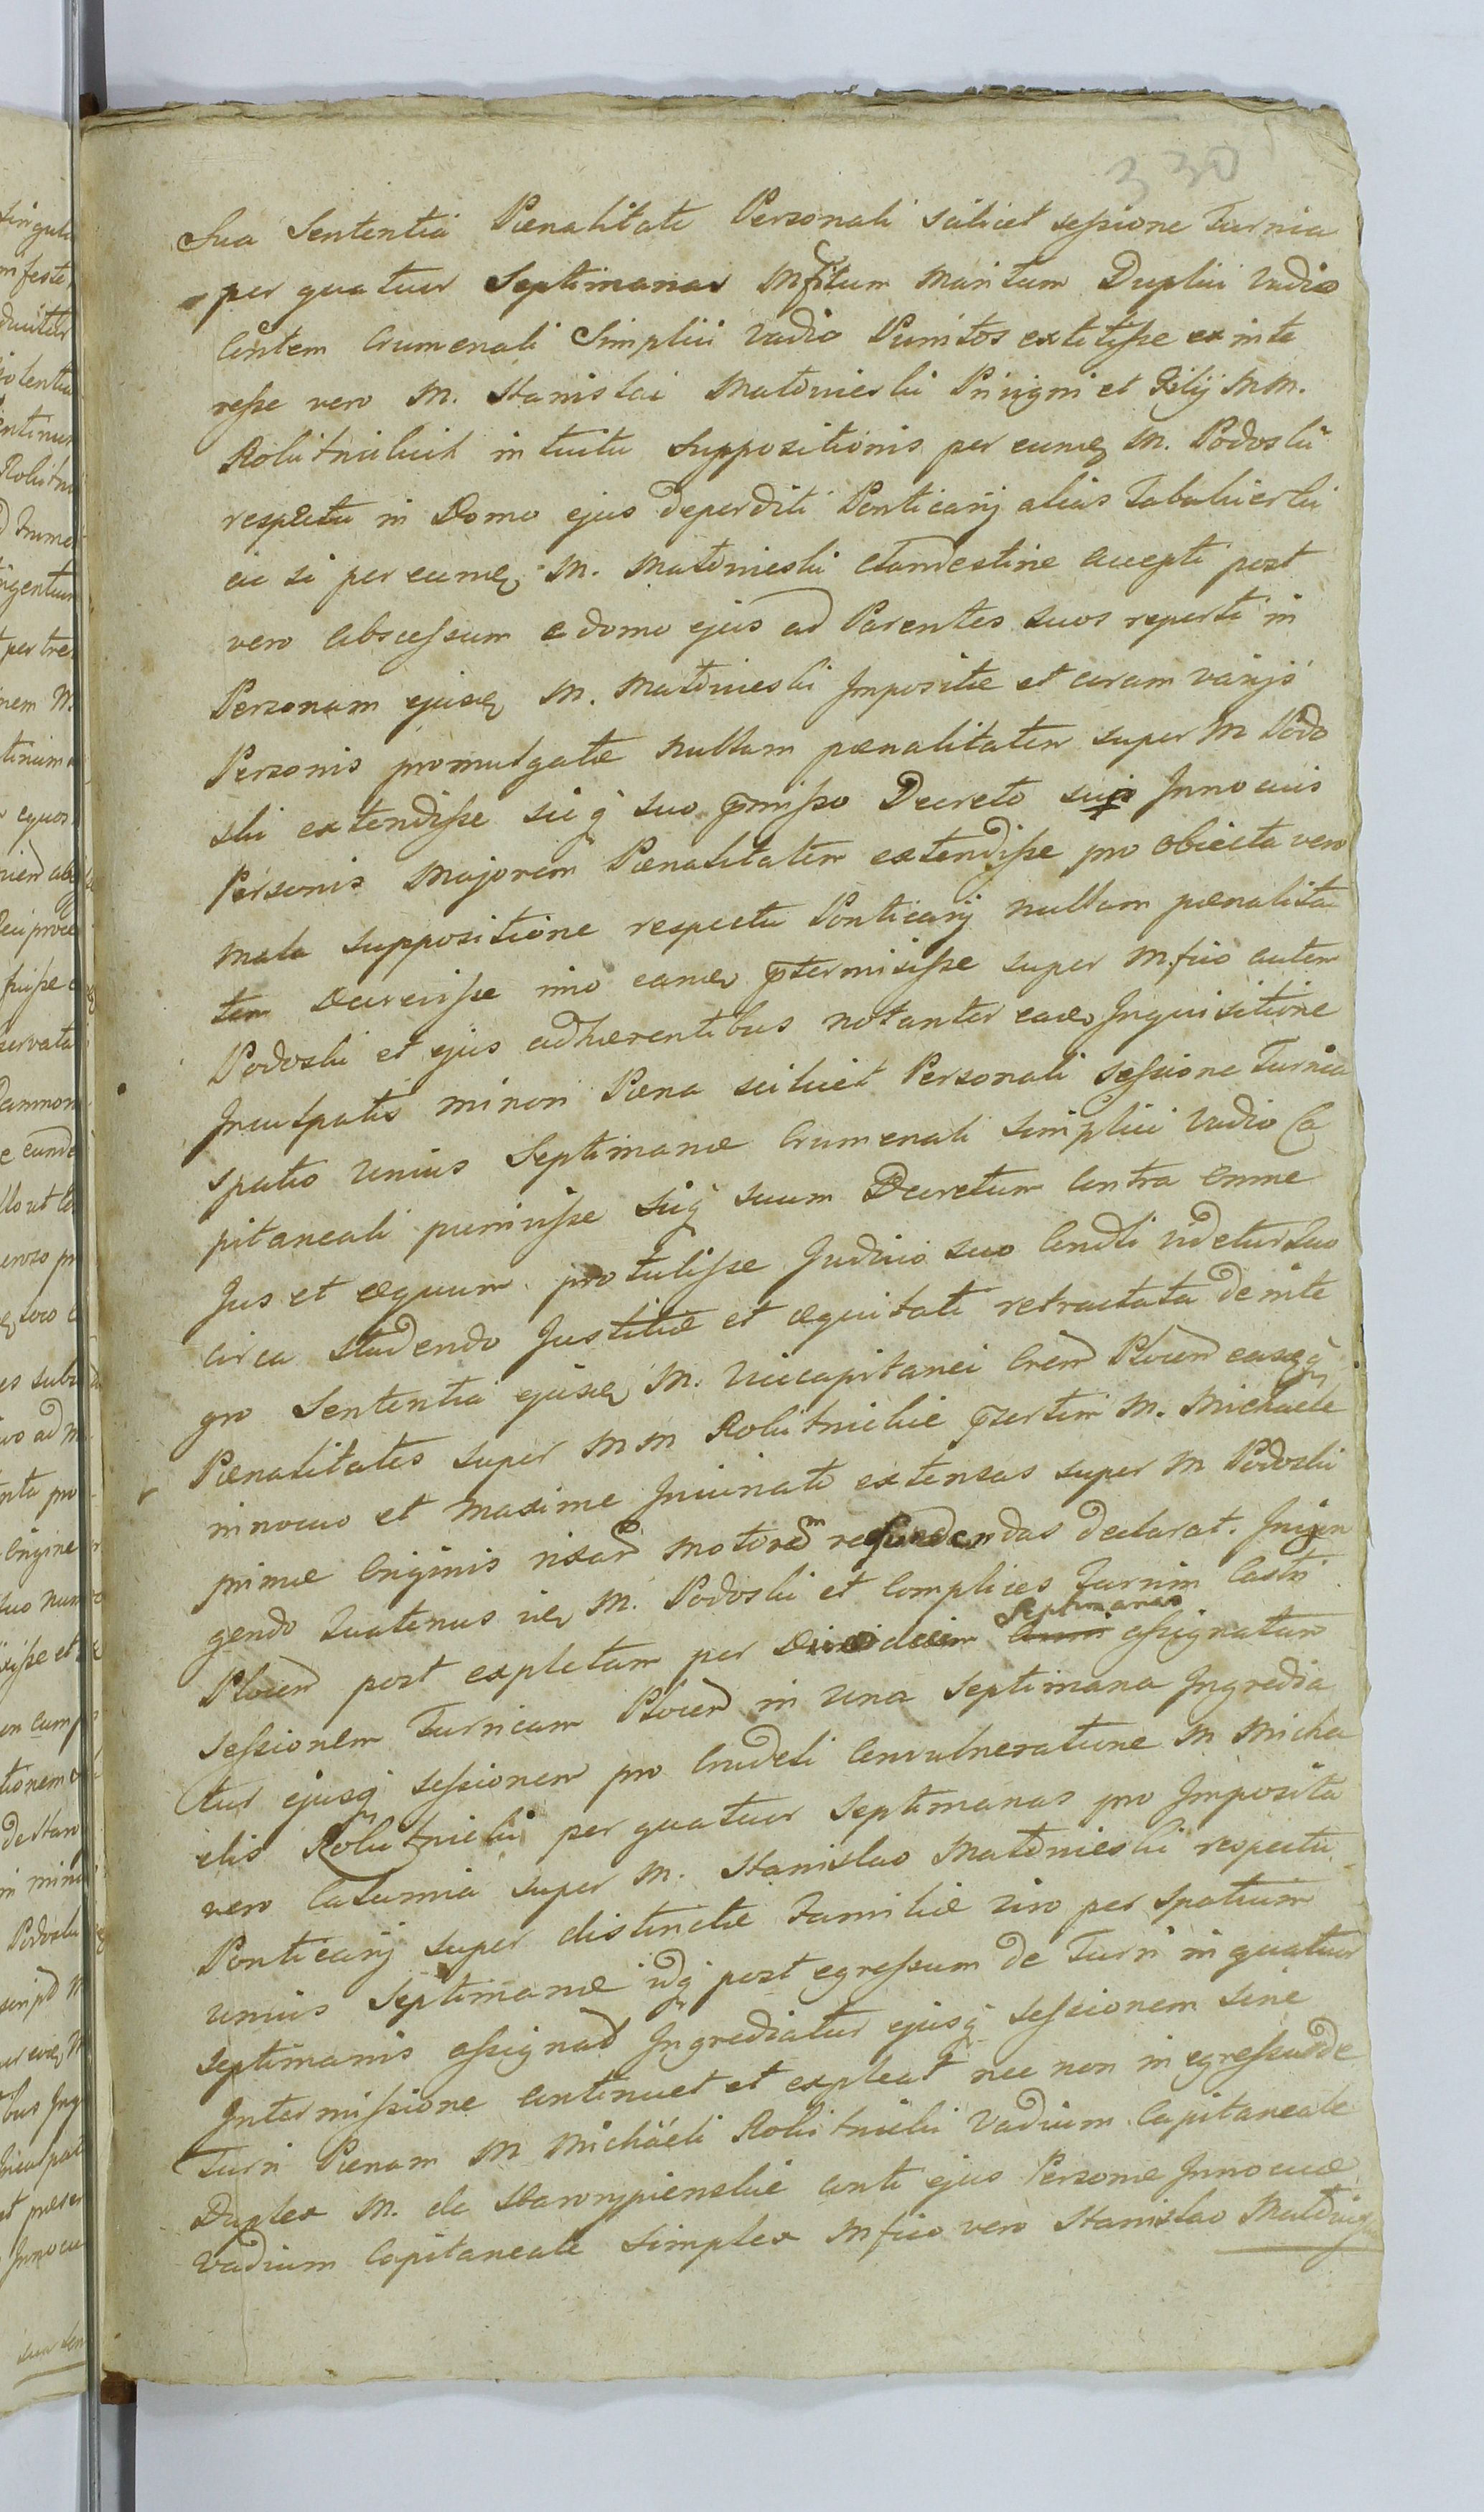 330
Sua Sententia Pœnalitate Personali scilicet sessione Turnia
per quatuor Septimanas Mfcum maritum Duplici Vadio
Contem Crumenali Simplici Vadio Punitos extitisse ex inte
resse vero M. Stanislai Matdnieski Privigni et Filij MM.
Rolutnickich intuitu Suppositionis per eumq M. Podoski
respectu in Domo ejus deperditi Ponticarij alias Tabakierki
ac si per eumq M. Matdnieski clandestine accepti post
vero abscessum e domo ejus ad Parentes suos reperti in
Personam ejusq M. Matdnieski Impositæ et coram varijs
Personis promulgatæ nullam pœnalitatem super M Podo
ski extendisse sicq suo pmisso Decreto Innocuis
Personis Majorem Pœnalitatem extendisse pro obiecta vero
mala suppositione respectu Ponticarij nullam pœnalita
tem decrevisse imo eamq ptermisisse super Mfico autem
Podoski et ejus adhærentibus notanter eadq Inquisitione
Inculpatis minori Pœna scilicet Personali sessione Turnia
spatio unius Septimanæ Crumenali simplici Vadio Ca
pitaneali punivisse Sicq suum Decretum Contra omne
Jus et æquum protulisse Judicio suo Condli videtur Quo
circa studendo Justitiæ et æquitati retractata de inte
gro Sententia ejusq M. Vicecapitanei Cren Plocen easq
Pœnalitates super MM Rolutnickie psertim M. Michaele
innocuo et maxime Injuriato extensas super M Podoski
primæ Originis rixar motorem refundendas declarat. Injun
gendo Quatenus iiq M. Podoski et Complices Turrim Castri
Plocen post expletam per Septimanas assignatam
sessionem Turnicam Plocen in una Septimana Ingredia
tur ejusq sessionem pro Crudeli Convulneratione M Micha
elis Rolutnicki per quatuor Septimanas pro Imposita
vero Calumnia super M. Stanislao Matdnieski respectu
Ponticarij super distinctæ Familiæ viro per Spatium
unius Septimanæ idq post egressum de Turri in quatuor
septimanis assignat Ingrediatur ejusq sessionem sine
Intermissione Continuet et expleat nec non in egressu de
Turri Pœnam M Michäeli Rolutnicki Vadium Capitaneale
Duplex M. de Starorypienskie Conti ejus Personæ Innocuæ
Vadium Capitaneale Simplex Mfico vero Stanislao